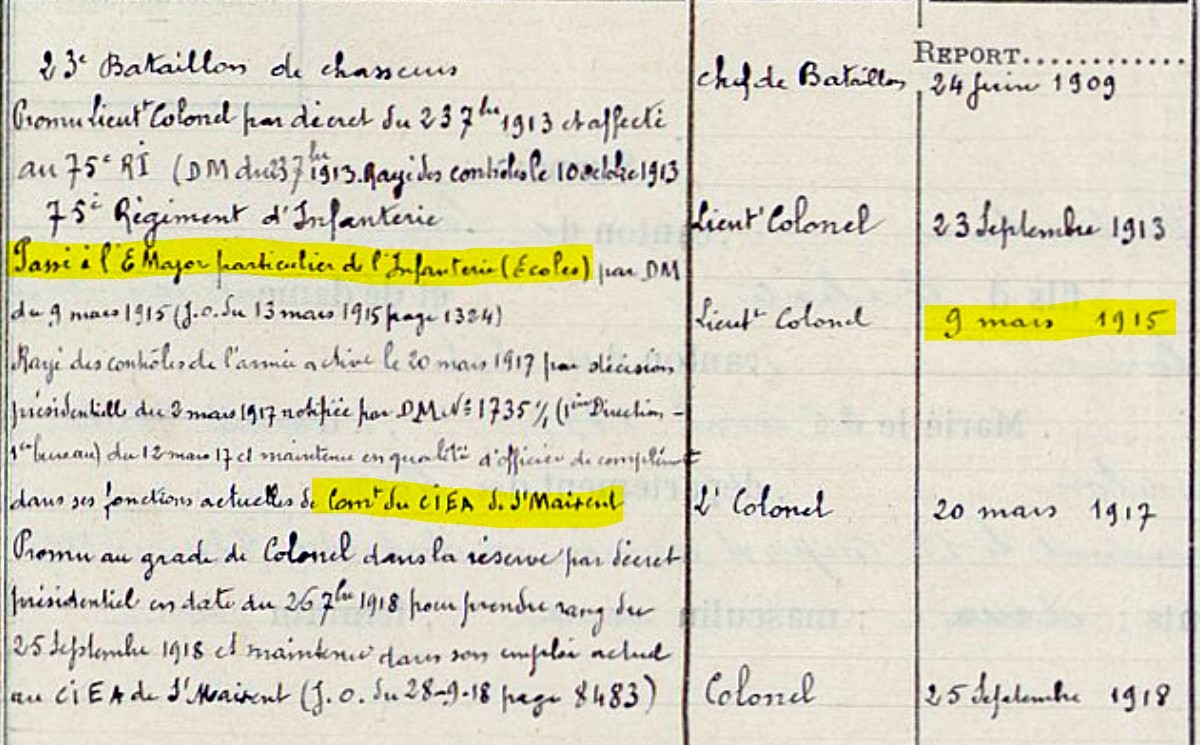 REPORT............
23e Bataillon de chasseurs
chef de Bataillon
24 Juin 1909
Promu Lieutt Colonel par décret du 23 7bre 1913 et affecté
au 75e RI (DM du 23 7bre 1913. Rayé des contrôles le 10 octobre 1913
75e Régiment d'Infanterie
Lieutt Colonel
23 Septembre 1913
Passé à l'E Major particulier de l'Infanterie (Écoles) par DM
du 9 mars 1915 (J.O. du 13 mars 1915 page 1324)
Lieutt Colonel
9 mars 1915
Rayé des contrôles de l'armée active le 20 mars 1917 par décision
présidentielle du 2 mars 1917 notifiée par DM No 1735 % (1ère Direction -
1er bureau) du 12 mars 17 et maintenu en qualité d'officier de complément
dans ses fonctions actuelles de Comt du CIEA de St Maixent
Lt Colonel
20 mars 1917
Promu au grade de Colonel dans la réserve par décret
présidentiel en date du 26 7bre 1918 pour prendre rang du
25 Septembre 1918 et maintenu dans son emploi actuel
au CIEA de St Maixent (J.O. du 28-9-18 page 8483)
Colonel
25 Septembre 1918